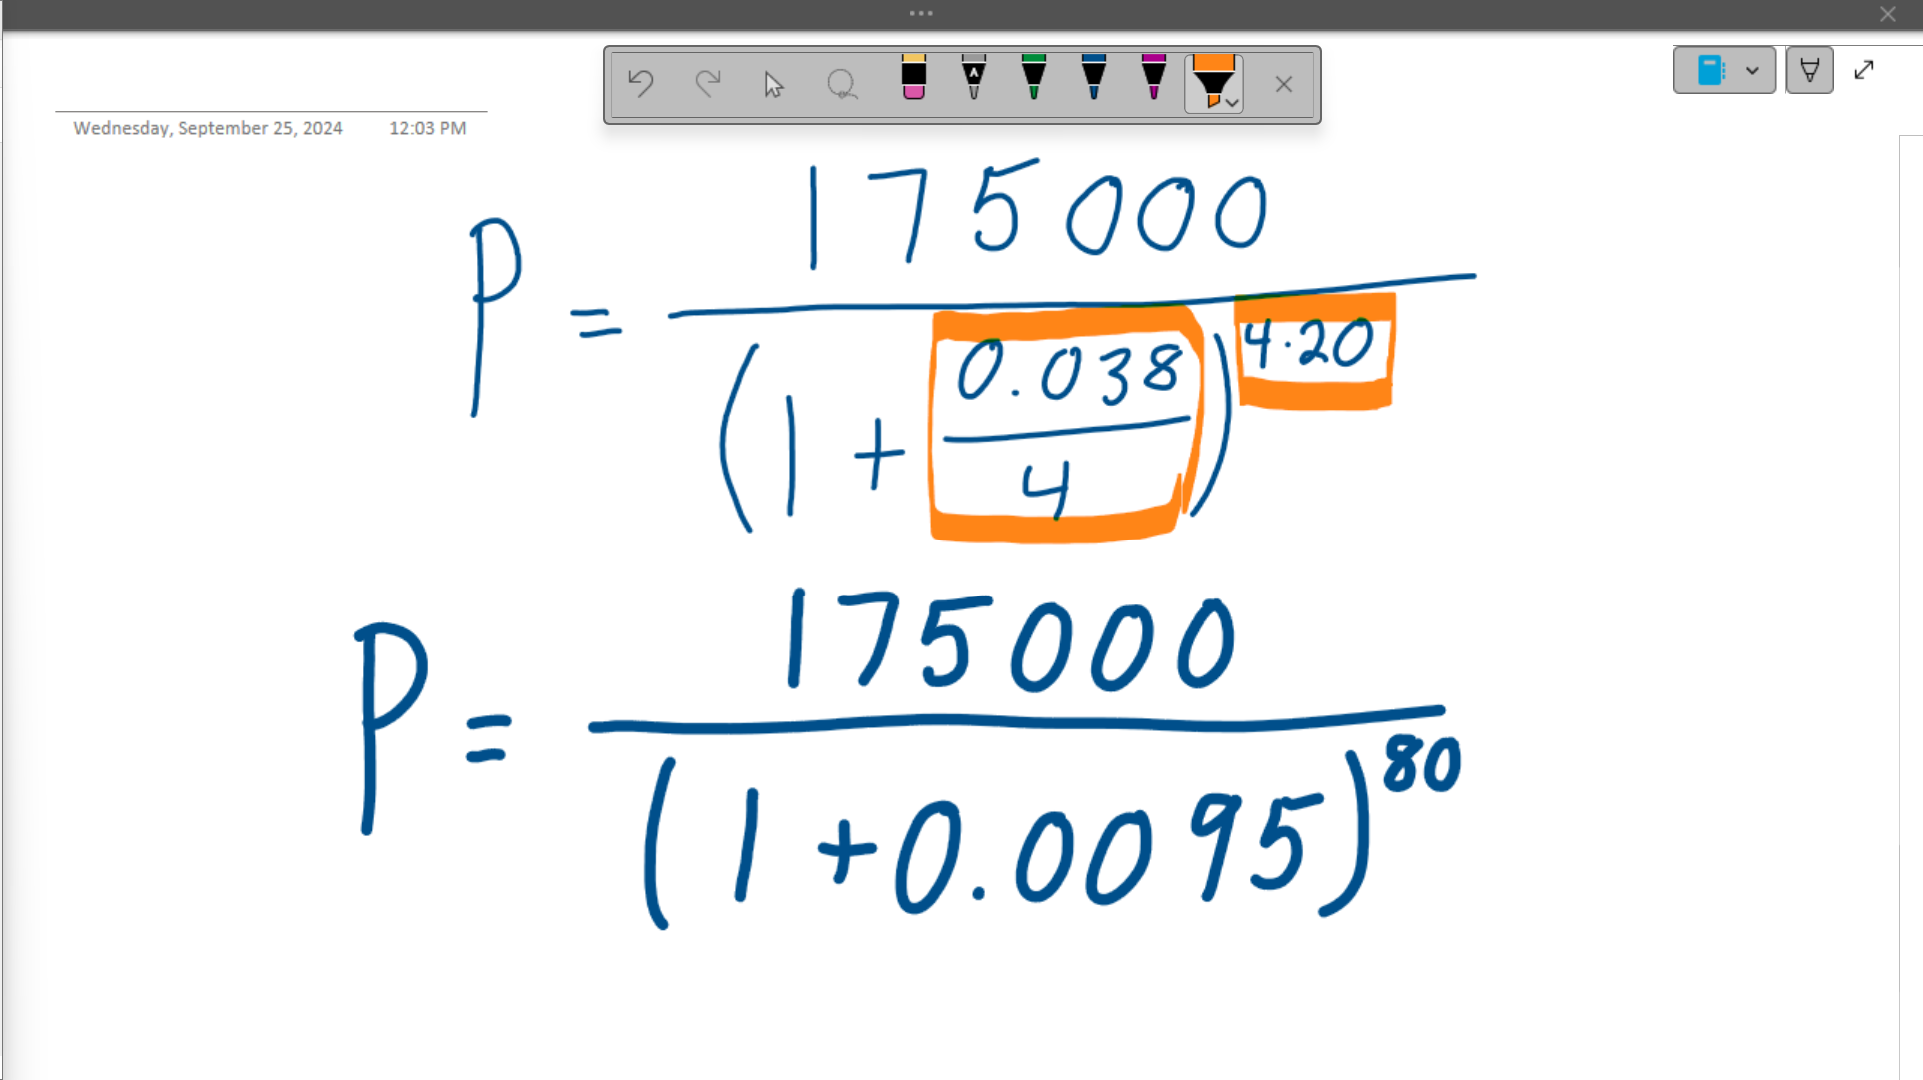 Wednesday, September 25, 2024 12:03 PM
175000
P =
(1 + 0.038 / 4)^4·20
175000
P =
(1 + 0.0095)^80